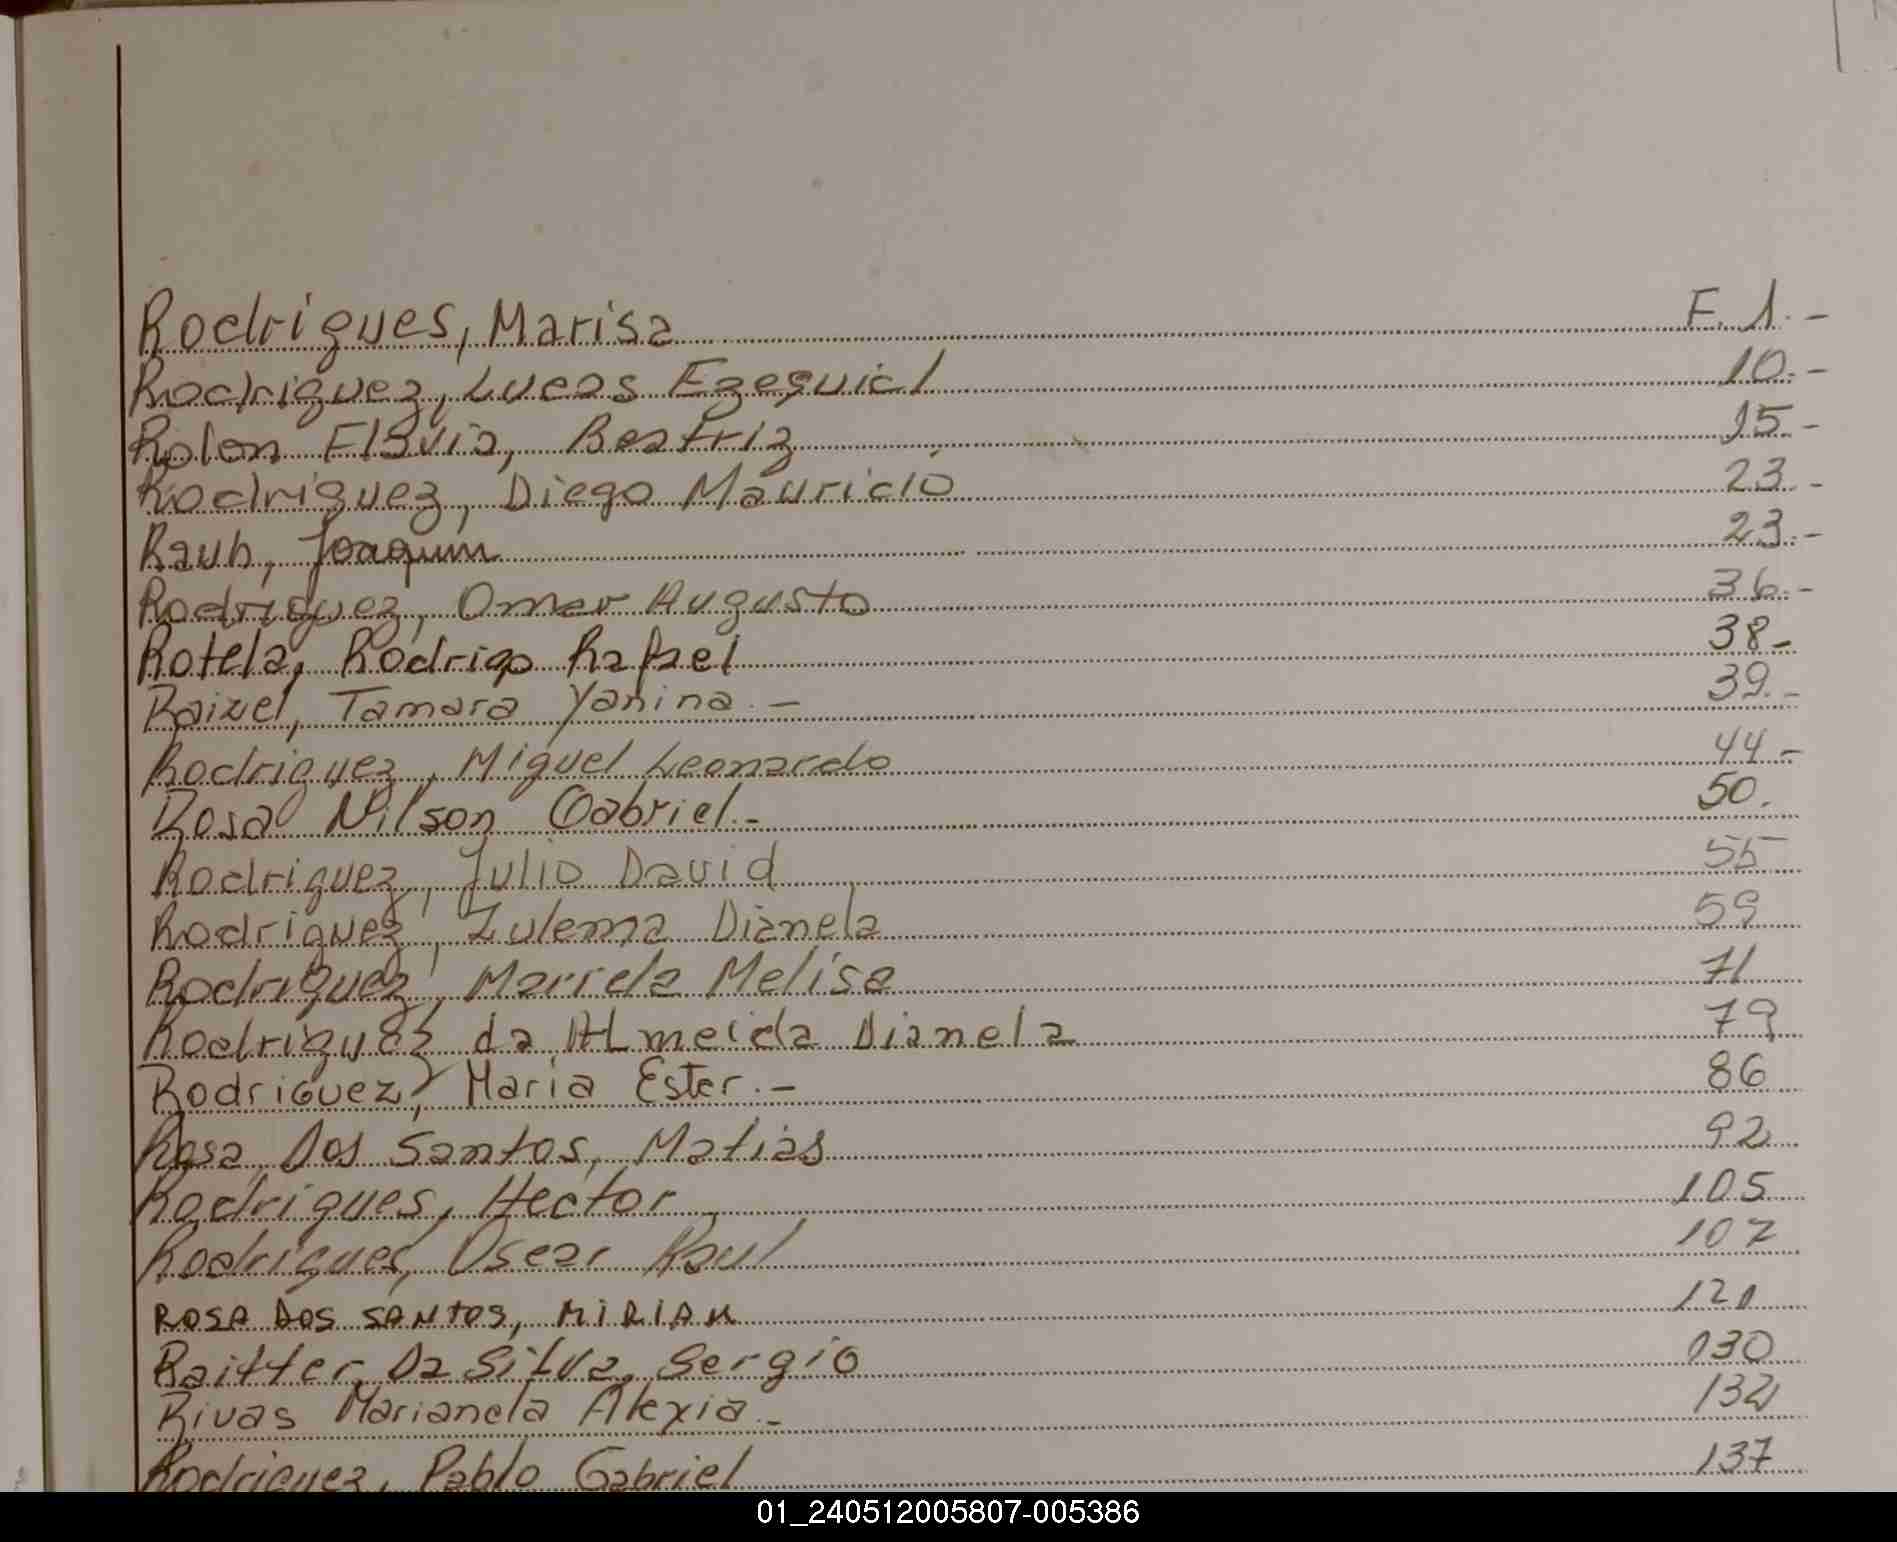 Rodrigues, Marisa F. 1.-
Rodriguez, Lucas Ezequiel 10.-
Rolon Flavia, Beatriz 15.-
Rodriguez, Diego Mauricio 23.-
Raub, Joaquim 23.-
Rodriguez, Omar Augusto 36.-
Rotela, Rodrigo Rafael 38-
Raizel, Tamara Yanina.- 39.-
Rodriguez, Miguel Leonardo 44.-
Rosa Nilson Gabriel.- 50.
Rodriguez, Julio David 55
Rodriguez, Zulema Dianela 59
Rodriguez, Mariela Melisa 71
Rodriguez da Almeida Dianela 79
Rodriguez, Maria Ester.- 86
Rosa Dos Santos, Matias 92
Rodrigues, Hector 105
Rodrigues, Oscar Raul 107
ROSA DOS SANTOS, MIRIAN 121
Raitter Da Silva, Sergio 130
Rivas Marianela Alexia.- 132
Rodriguez, Pablo Gabriel 137
01_240512005807-005386